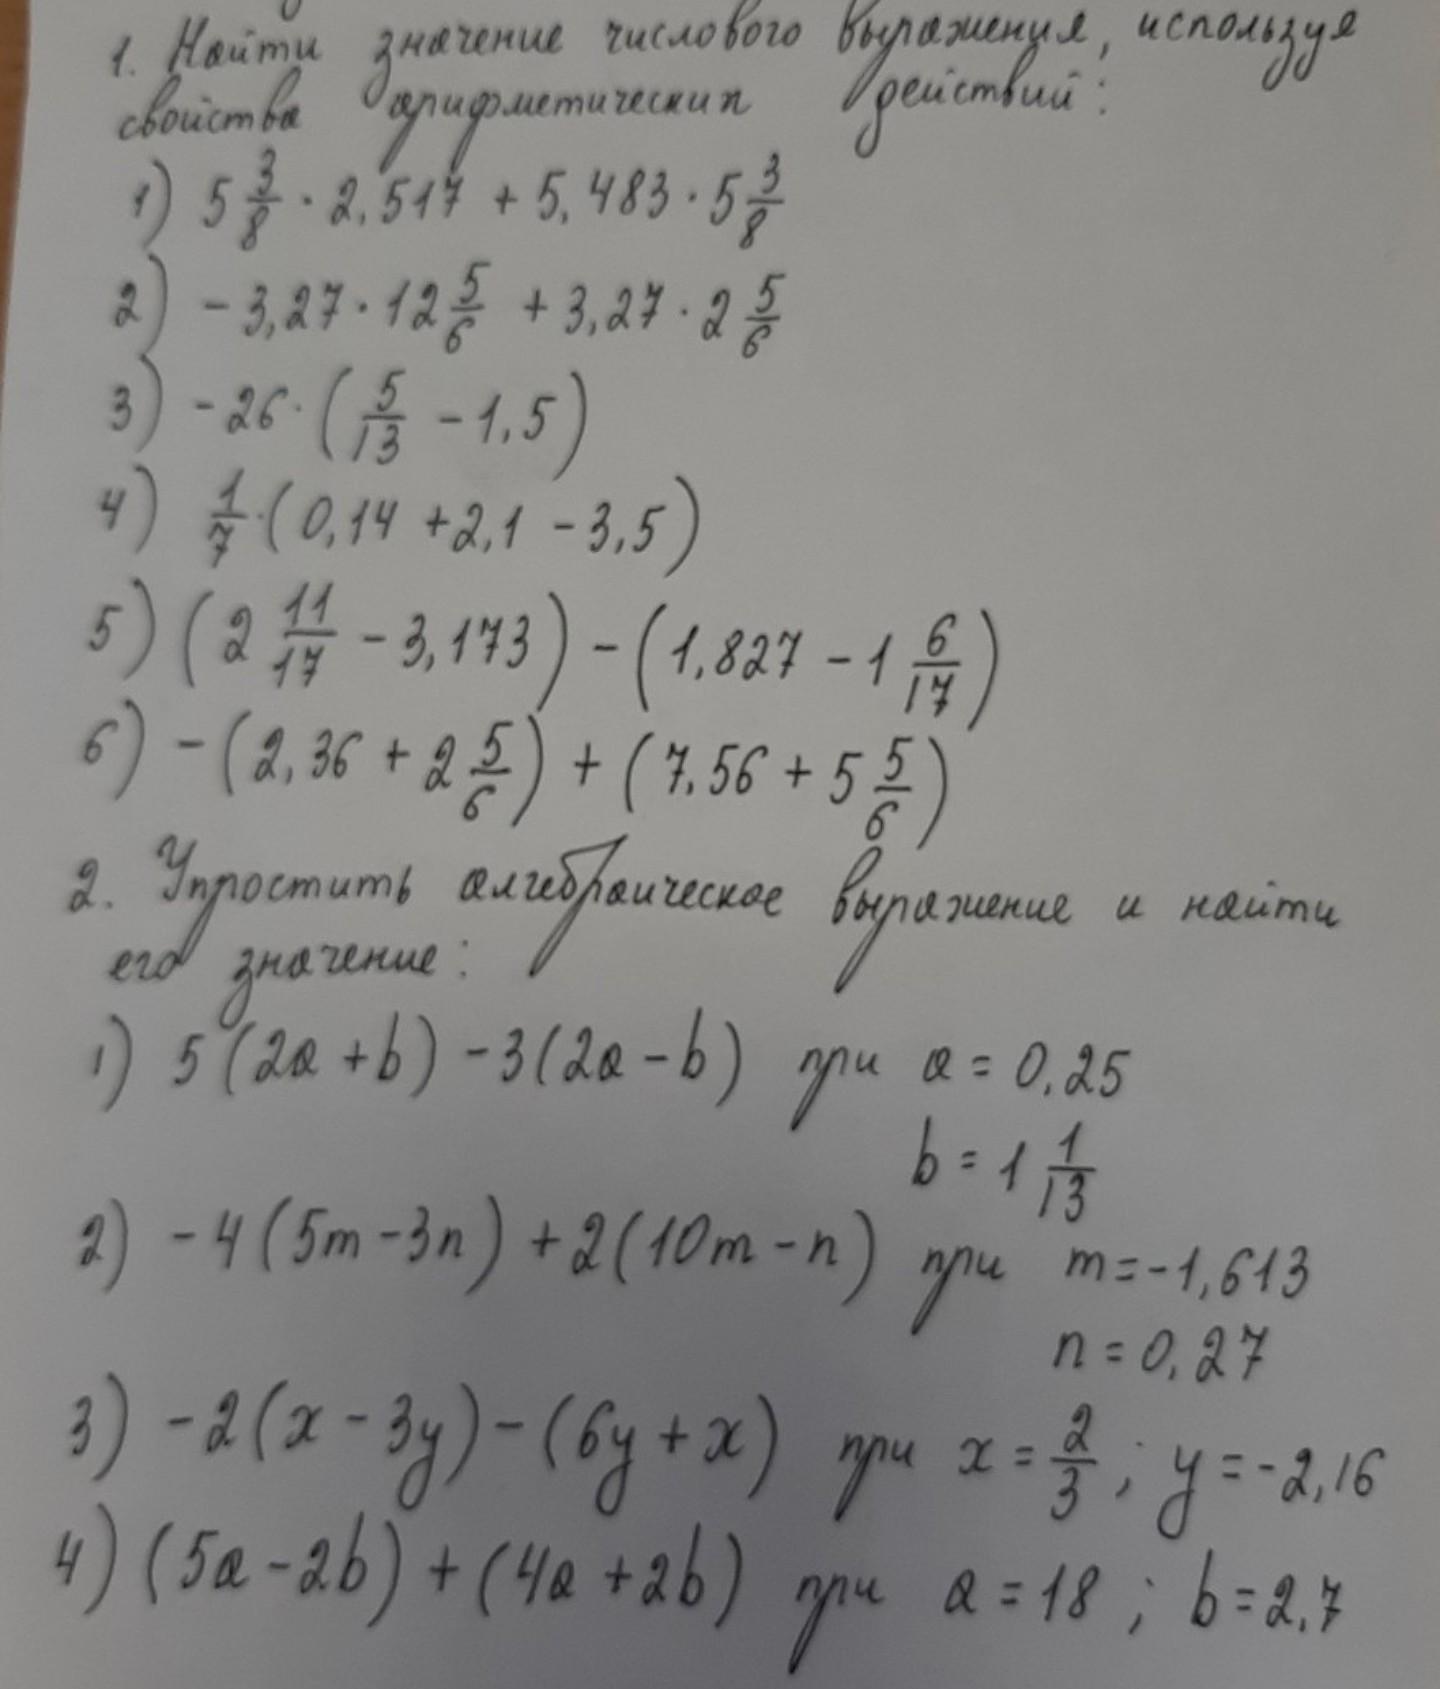 1. Найти значение числового выражения, используя
свойства арифметических действий:
1) 5 3/8 · 2,517 + 5,483 · 5 3/8
2) - 3,27 · 12 5/6 + 3,27 · 2 5/6
3) - 26 · (5/13 - 1,5)
4) 1/7 · (0,14 + 2,1 - 3,5)
5) (2 11/17 - 3,173) - (1,827 - 1 6/17)
6) - (2,36 + 2 5/6) + (7,56 + 5 5/6)
2. Упростить алгебраическое выражение и найти
его значение:
1) 5(2a + b) - 3(2a - b) при a = 0,25
b = 1 1/13
2) - 4(5m - 3n) + 2(10m - n) при m = -1,613
n = 0,27
3) - 2(x - 3y) - (6y + x) при x = 2/3; y = -2,16
4) (5a - 2b) + (4a + 2b) при a = 18; b = 2,7